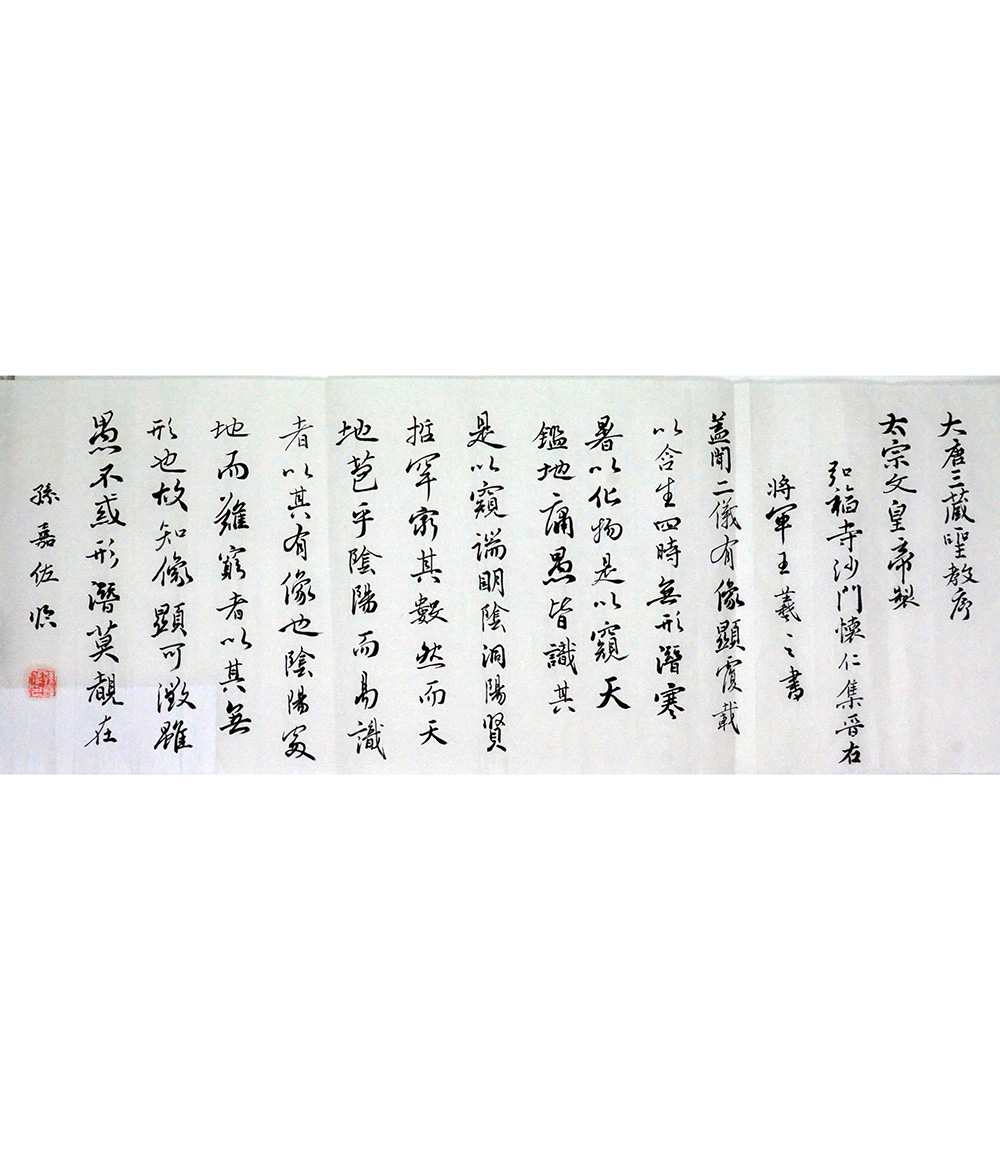 大唐三藏聖教序
太宗文皇帝製
弘福寺沙門懷仁集晉右
將軍王羲之書
蓋聞二儀有像顯覆載
以含生四時無形潛寒
暑以化物是以窺天
鑑地庸愚皆識其
是以窺端明陰洞陽賢
哲罕窮其數然而天
地苞乎陰陽而易識
者以其有像也陰陽處
地而難窮者以其無
形也故知像顯可徵雖
愚不惑形潛莫覩在
孫嘉佐臨